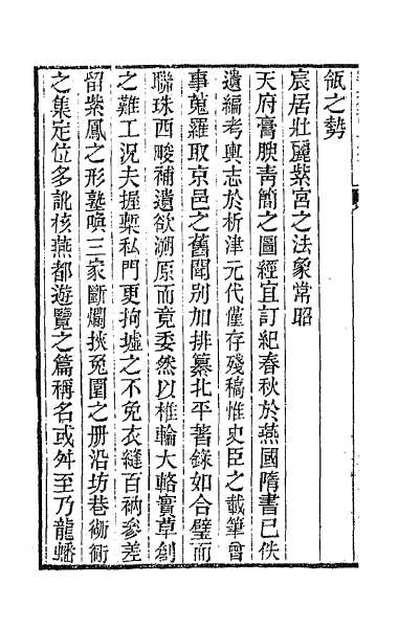 瓴之勢
宸居壯麗紫宮之法象常昭
天府膏腴靑簡之圖經宜訂紀春秋於燕國隋書已佚
遺編考輿志於析津元代僅存殘稿惟史臣之載筆曾
事蒐羅取京邑之舊聞別加排纂北平著錄如合璧而
聯珠西畯補遺欲溯原而竟委然以椎輪大輅實草創
之難工況夫握槧私門更拘墟之不免衣縫百衲參差
留紫鳳之形塾喚三家斷爛挾兔園之册沿坊巷衚衕
之集定位多訛核燕都遊覽之篇稱名或舛至乃龍蟠